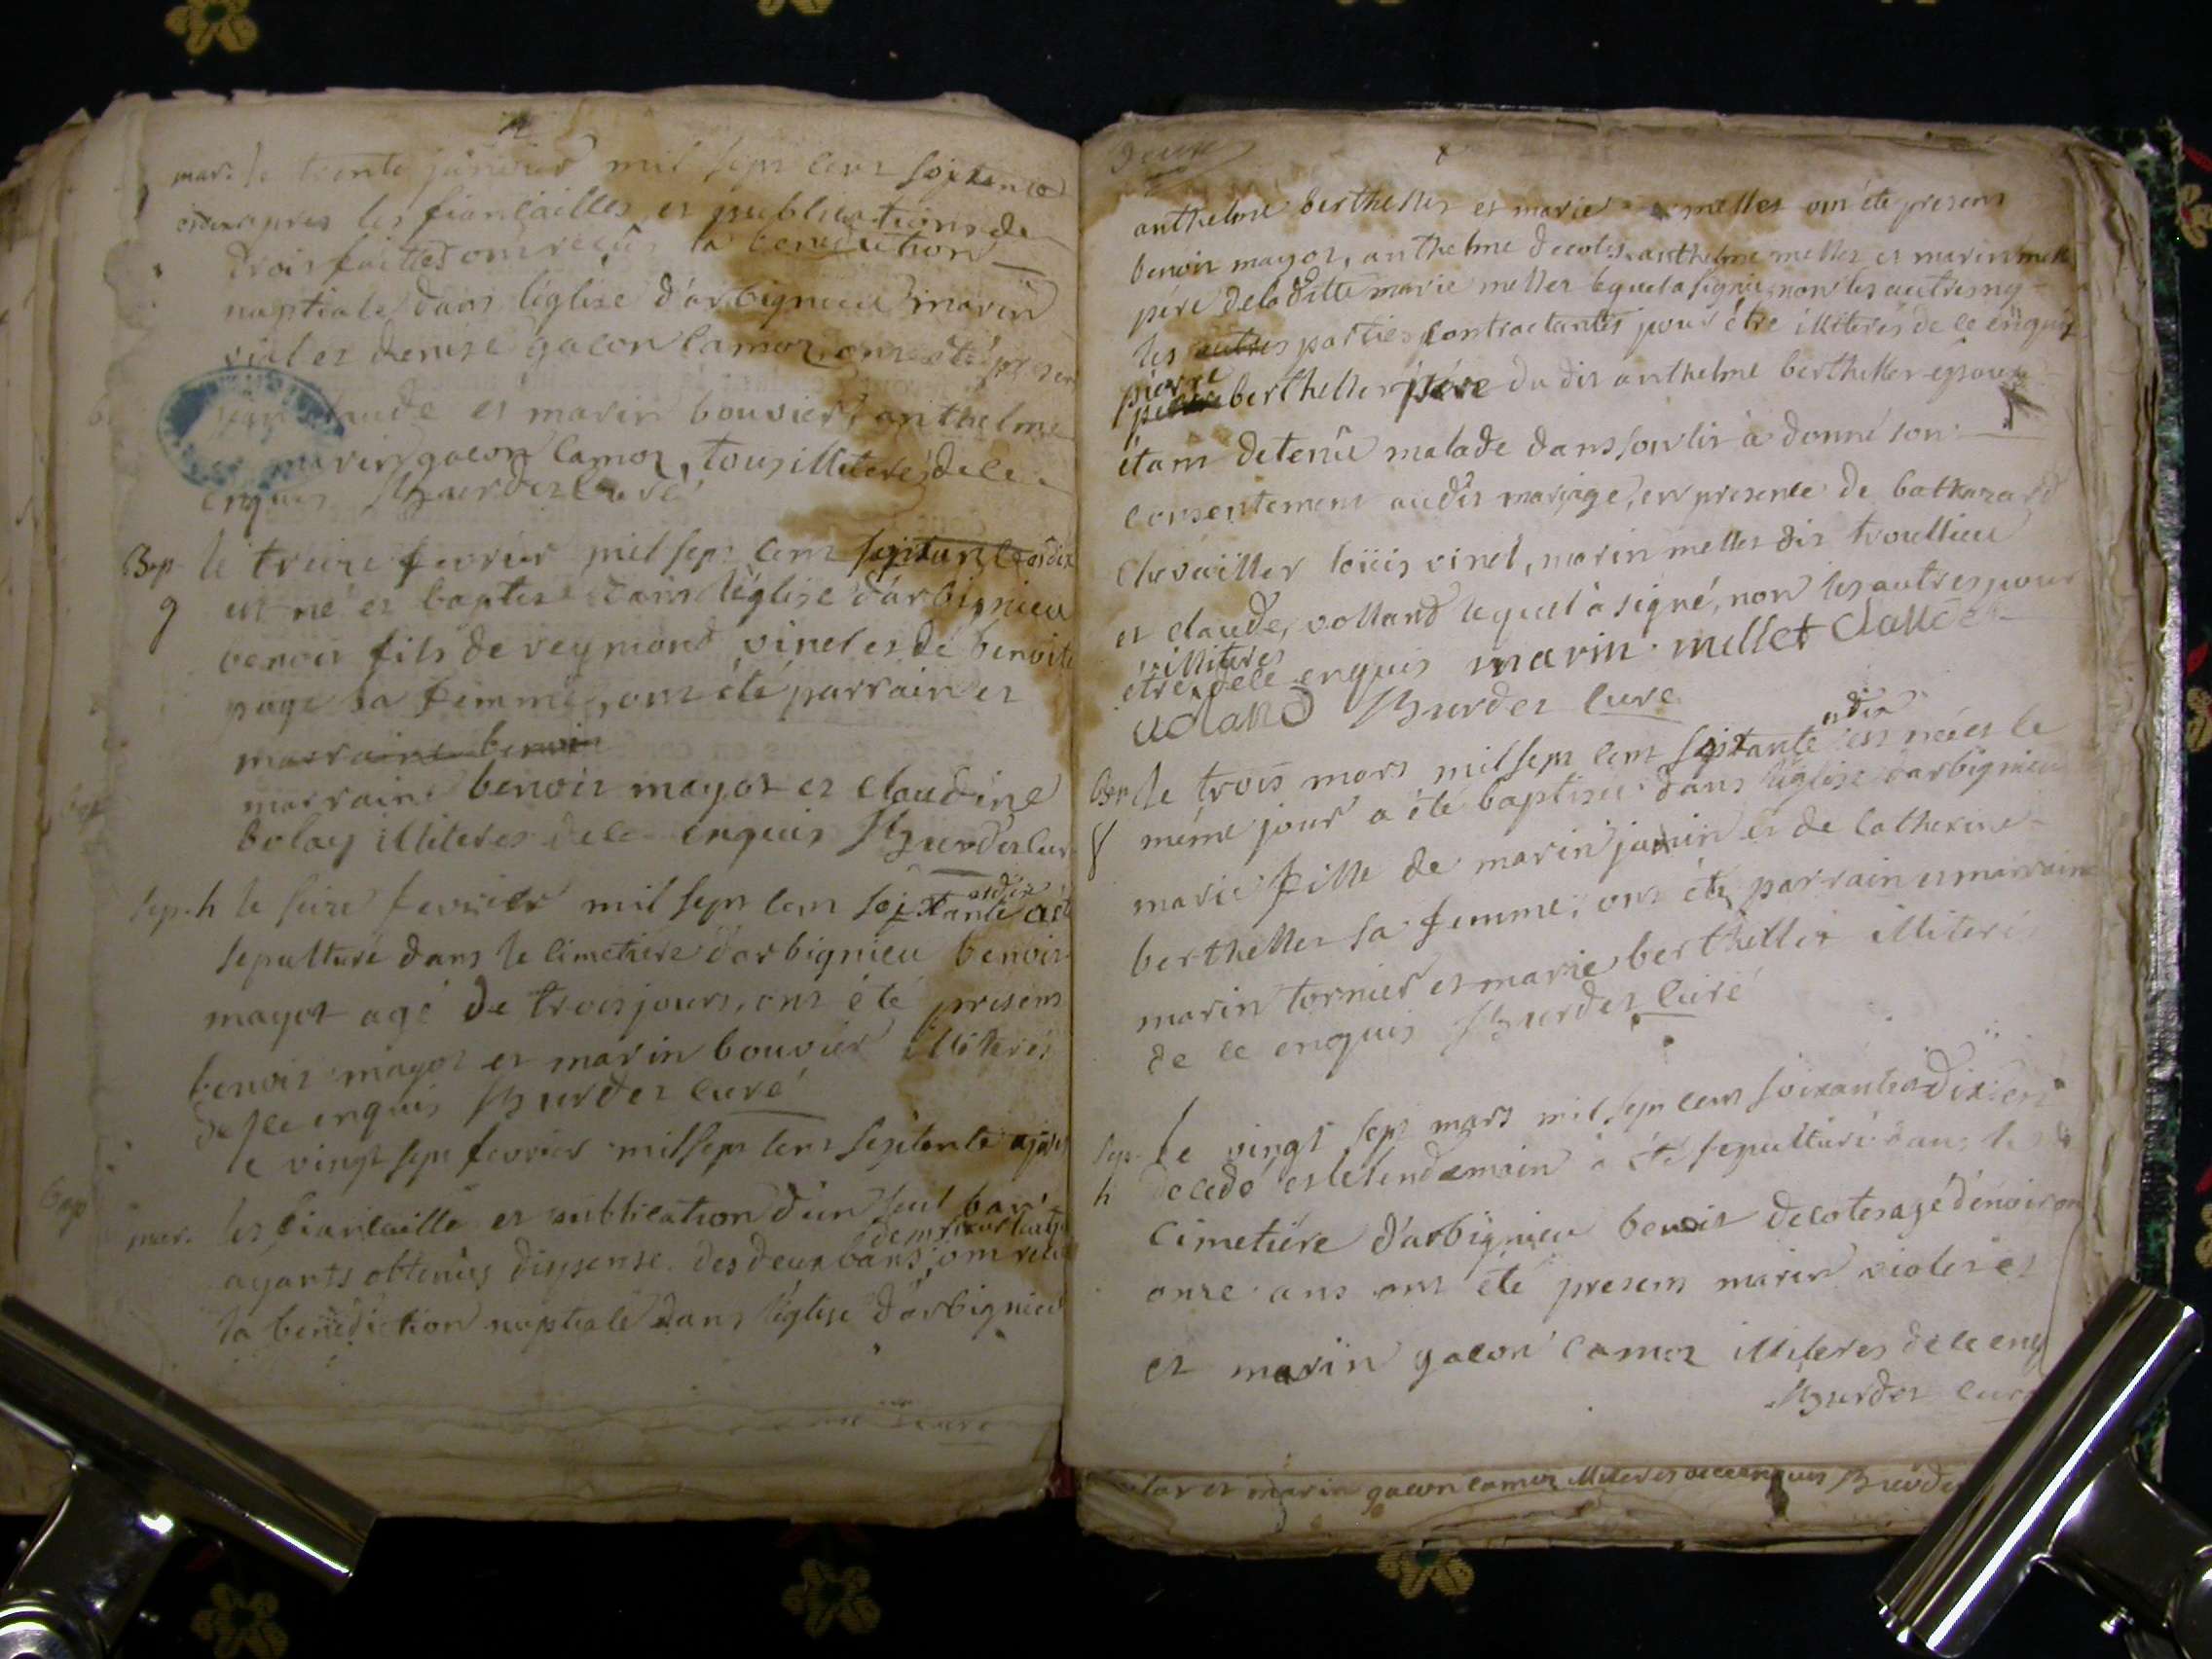 mar. le trente janvier mil sept cent soixante
et dix apres les fiancailles et publications de
trois faittes ont reçûs la benediction
nuptiale dans l'église d'arbignieu marin
violet et denise gacon camoz, ont été presen
jean claude et marin bouvier, anthelme
et marin gacon camoz, tous illiterés de ce
enquis Burdet curé
Bap. le treize fevrier mil sept cent soixante et dix
g est né et baptisé dans l'église d'arbignieu
benoit fils de reymond vinel et de benoite
page sa femme, ont été parrain et
marraine benoit
marraine benoit mayot et claudine
bolay illiteres de ce enquis Burdet cur
sep. h le seize fevrier mil sept cent soixante et dix a été
sepulturé dans le cimetiere d'arbignieu benoit
mayot agé de trois jours, ont été presens
benoit mayot et marin bouvier illiterés
de ce enquis Burdet curé
le vingt sept fevrier mil sept cent septente apres
mar. les fiancaille et publication d'un seul ban
ayants obtenus dispense des deux bans, ont reçu
la benediction nuptiale dans l'église d'arbignieu
Deux
anthelme berthellet et marie mellet ont été presens
benoit mayot, anthelme decotes, anthelme mellet et marin mell
père de la ditte marie mellet lequel a signé, non les autres ny
les autres parties contractantes pour être illiterés de ce enquis
pierre
berthellet père du dit anthelme berthellet epoux
étant detenû malade dans son lit à donné son
consentement au dit mariage, en presence de baltazard
chevaillier loüis vinel, marin mellet dit troullieu
et claude, volland lequel à signé, non les autres pour
illiteres
être de ce enquis marin mellet claude
volland Burdet curé
et dix
Bap. le trois mars mil sept cent soixante est née et le
f même jour a été baptisée dans l'église d'arbignieu
marie fille de marin janin et de catherine
berthellet sa femme, ont été parrain et marraine
marin tornier et marie berthellet illiterés
de ce enquis Burdet curé
Sep. le vingt sept mars mil sept cent soixante et dix est
h decedé et le lendemain a été sepulturé dans le
cimetiére d'arbignieu benoit decotes agé d'environ
onze ans ont été presens marin violet et
et marin gacon camoz illiteres de ce enq
Burdet curé
et marin gacon camoz illiteres de ce enquis Burdet